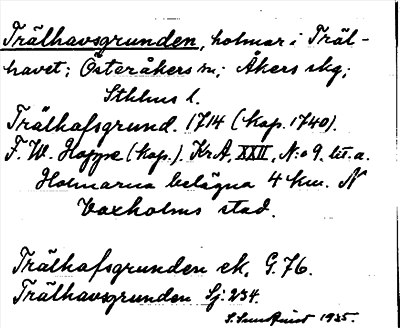 Trälhavsgrunden, holmar i Träl-
havet; Österåkers sn; Åkers skg;
Sthlms l.
Trälhafsgrund. 1714 (kop. 1740).
F. W. Hoppe (kop.). KrA, XXII, N:o 9. litt. a.
Holmarna belägna 4 km. N
Vaxholms stad.
Trälhafsgrunden ek. G. 76.
Trälhavsgrunden Sj. 234.
1935.